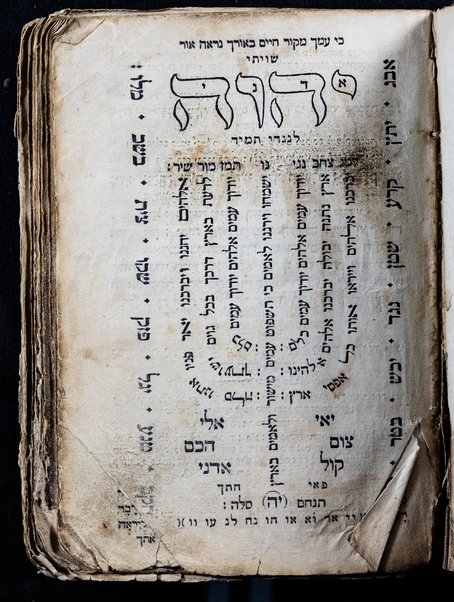 כי עמך מקור חיים באורך נראה אור
שויתי
יהוה
א ד נ י
לנגדי תמיד
אבג ・ יתץ ・ קרע ・ שטן ・ נגד ・ יכש ・ בטר ・
צתג ・ חקב ・ טנע ・ יגל ・ פזק ・ שקו ・ צית
נגי נו תמז מור שיר:
אלהים יחננו ויברכנו יאר פניו אתנו
לדעת בארץ דרכך בכל גוים ישועתך
יודוך עמים אלהים יודוך עמים כלם: סלה:
ישמחו וירננו לאמים כי תשפוט עמים מישור ולאמים בארץ
יודוך עמים אלהים יודוך עמים כלם:
ארץ נתנה יבולה יברכנו אלהים אלהינו:
יברכנו אלהים וייראו אותו כל אפסי ארץ:
יאי אלי
צום הכם
קול אדני
פאי חתך
תנחם (יה) סלה: